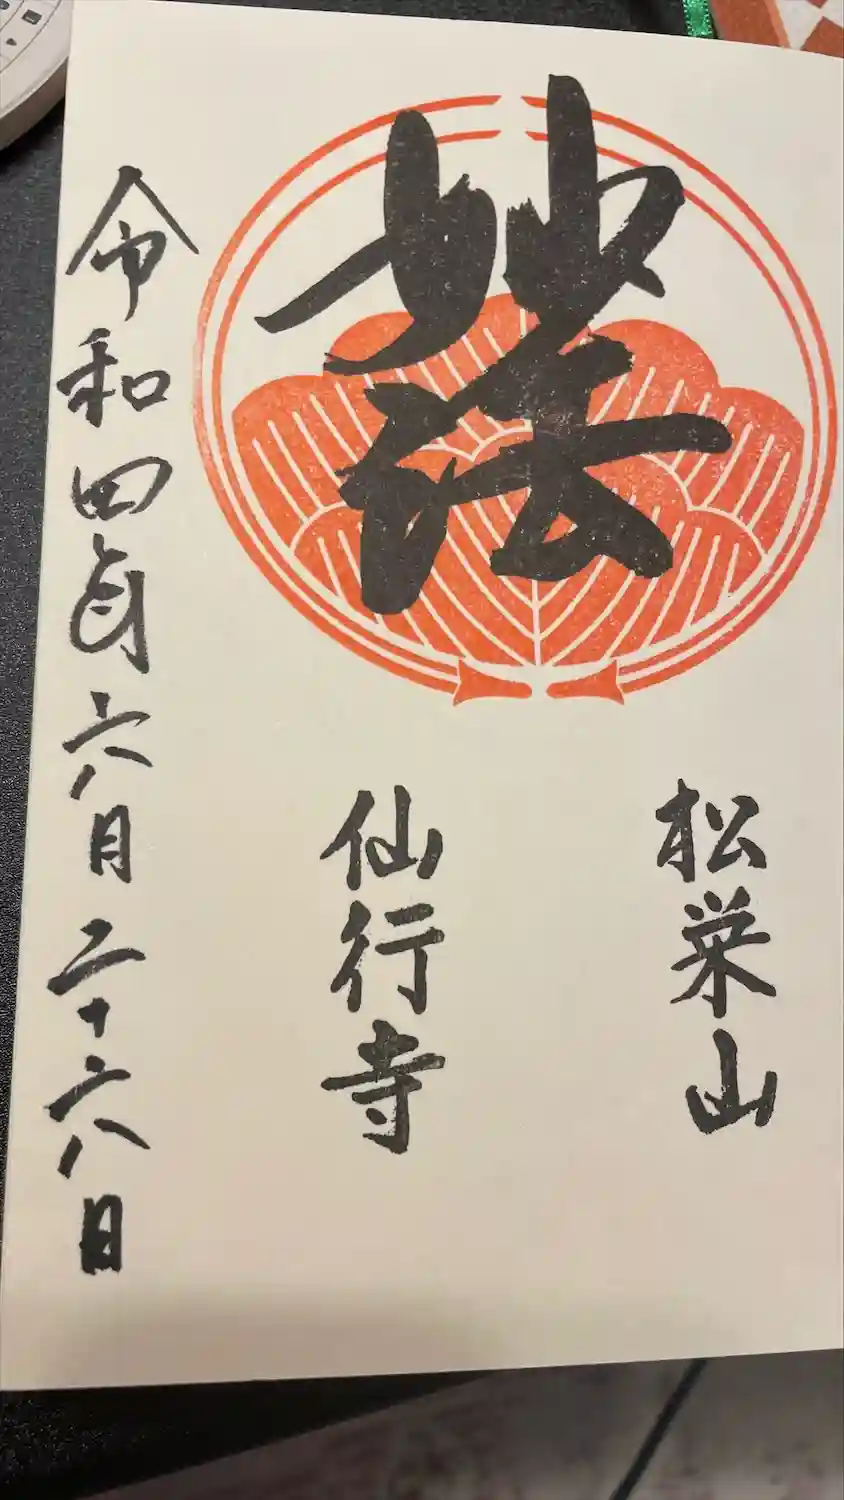 妙法
松栄山
仙行寺
令和四年六月二十六日